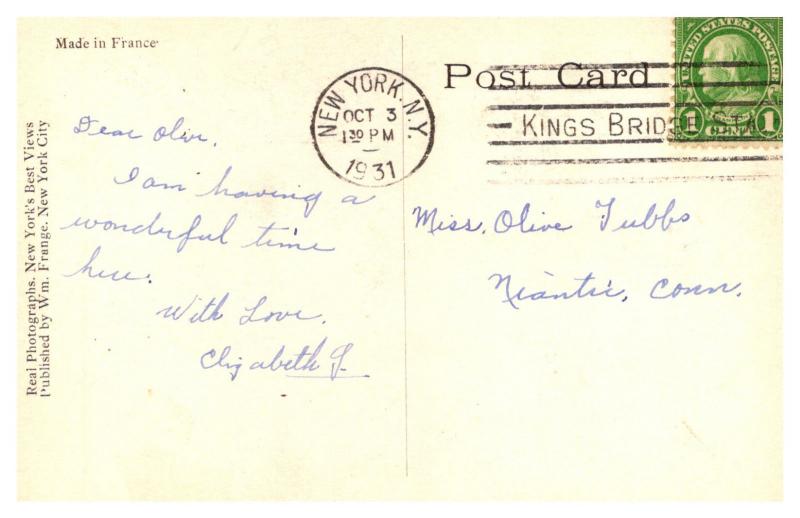 Made in France
Post Card
NEW YORK, N.Y.
OCT 3
1 30 PM
1931
KINGS BRIDGE STA
UNITED STATES POSTAGE
1 CENT 1
Real Photographs. New York's Best Views
Published by Wm. Frange. New York City
Dear Olive,
I am having a
wonderful time
here.
With Love,
Elizabeth G.
Miss. Olive Tubbs
Niantic, Conn.